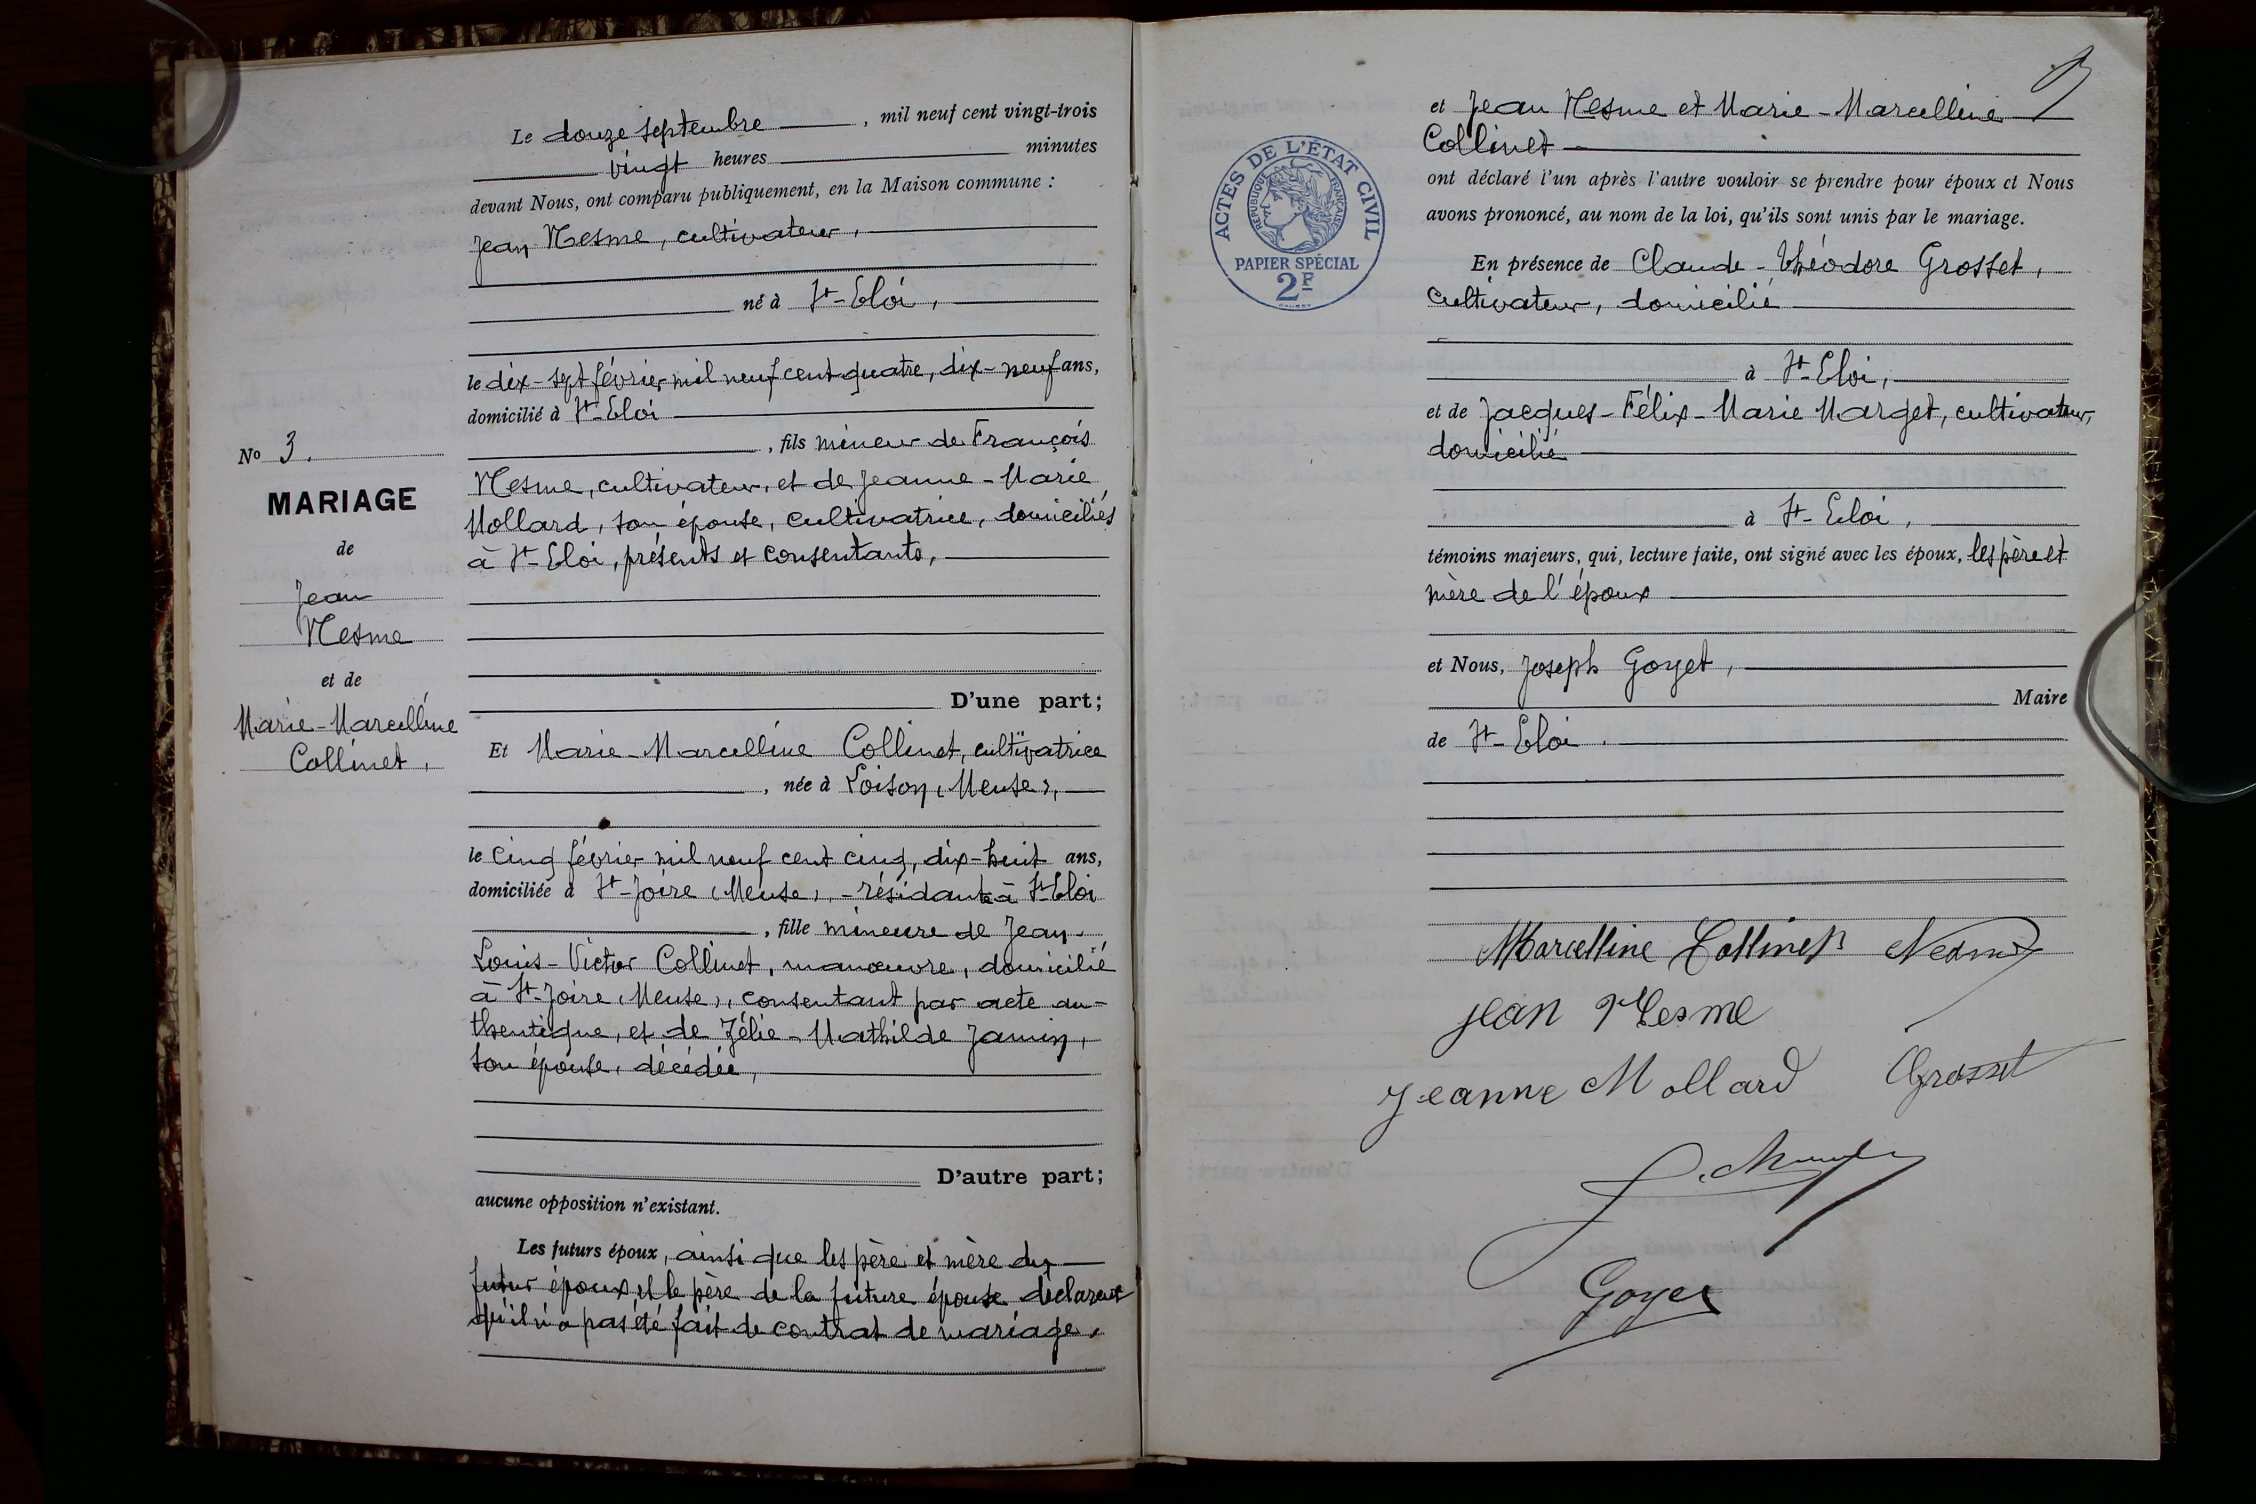 Le douze septembre, mil neuf cent vingt-trois
vingt heures minutes
devant Nous, ont comparu publiquement, en la Maison commune :
Jean Nesme, cultivateur,
né à St-Eloi,
le dix-sept février mil neuf cent quatre, dix-neuf ans,
domicilié à St-Eloi
, fils mineur de François
Nesme, cultivateur, et de Jeanne-Marie
Mollard, son épouse, cultivatrice, domiciliés
à St-Eloi, présents et consentants,
No 3.
MARIAGE
de
Jean
Nesme
et de
Marie-Marcelline
Collinet,
D'une part;
Et Marie-Marcelline Collinet, cultivatrice
, née à Loison (Meuse),
le cinq février mil neuf cent cinq, dix-huit ans,
domiciliée à St-Joire (Meuse), - résidante à St-Eloi
, fille mineure de Jean-
Louis-Victor Collinet, manœuvre, domicilié
à St-Joire (Meuse), consentant par acte au-
thentique, et de Zélie-Mathilde Jamin,
son épouse, décédée,
D'autre part;
aucune opposition n'existant.
Les futurs époux, ainsi que les père et mère du
futur époux et le père de la future épouse déclarent
qu'il n'a pas été fait de contrat de mariage.
et Jean Nesme et Marie-Marcelline
Collinet
ACTES DE L'ÉTAT CIVIL
RÉPUBLIQUE FRANÇAISE
PAPIER SPÉCIAL
2F
ont déclaré l'un après l'autre vouloir se prendre pour époux et Nous
avons prononcé, au nom de la loi, qu'ils sont unis par le mariage.
En présence de Claude-Théodore Grosset,
cultivateur, domicilié
à St-Eloi,
et de Jacques-Félix-Marie Marget, cultivateur,
domicilié
à St-Eloi,
témoins majeurs, qui, lecture faite, ont signé avec les époux, les père et
mère de l'époux
et Nous, Joseph Goyet,
Maire
de St-Eloi.
Marcelline Collinet Nesme
Jean Nesme
Jeanne Mollard Grosset
Goyet